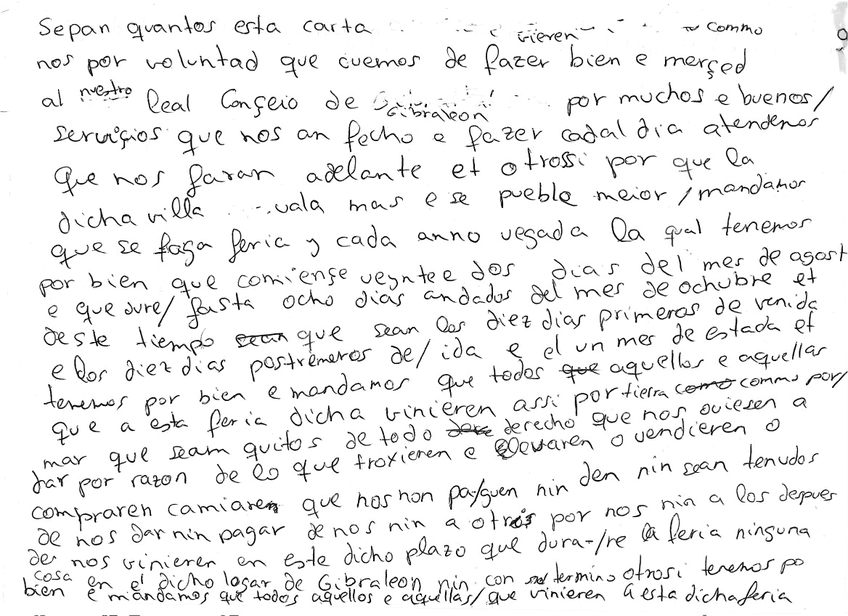 Sepan quantos esta carta vieren commo
nos por voluntad que avemos de fazer bien e merçed
al nuestro Real Conçeio de Gibraleon por muchos e buenos/
serviçios que nos an fecho e fazer cadal dia atendemos
que nos faran adelante et otrossi por que la
dicha villa vala mas e se pueble meior / mandamos
que se faga feria y cada anno vegada la qual tenemos
por bien que comiense veynte e dos dias del mes de agost
e que dure/ fasta ocho dias andados del mes de ochubre et
deste tiempo sean que sean los diez dias primeros de venida
e los diez dias postremeros de/ ida e el un mes de estada et
tenemos por bien e mandamos que todos que aquellos e aquellas
que a esta feria dicha vinieren assi por tierra como commo por/
mar que seam quitos de todo derecho que nos oviesen a
dar por razon de lo que troxieren e levaren o vendieren o
compraren camiaren que nos non pa/guen nin den nin sean tenudos
de nos dar nin pagar de nos nin a otros por nos nin a los depues
de nos vinieren en este dicho plazo que dura-/re la feria ninguna
cosa en el dicho logar de Gibraleon nin con termino otrosi tenemos po
bien e mandamos que todos aquellos e aquellas/ que vinieren a esta dicha feria